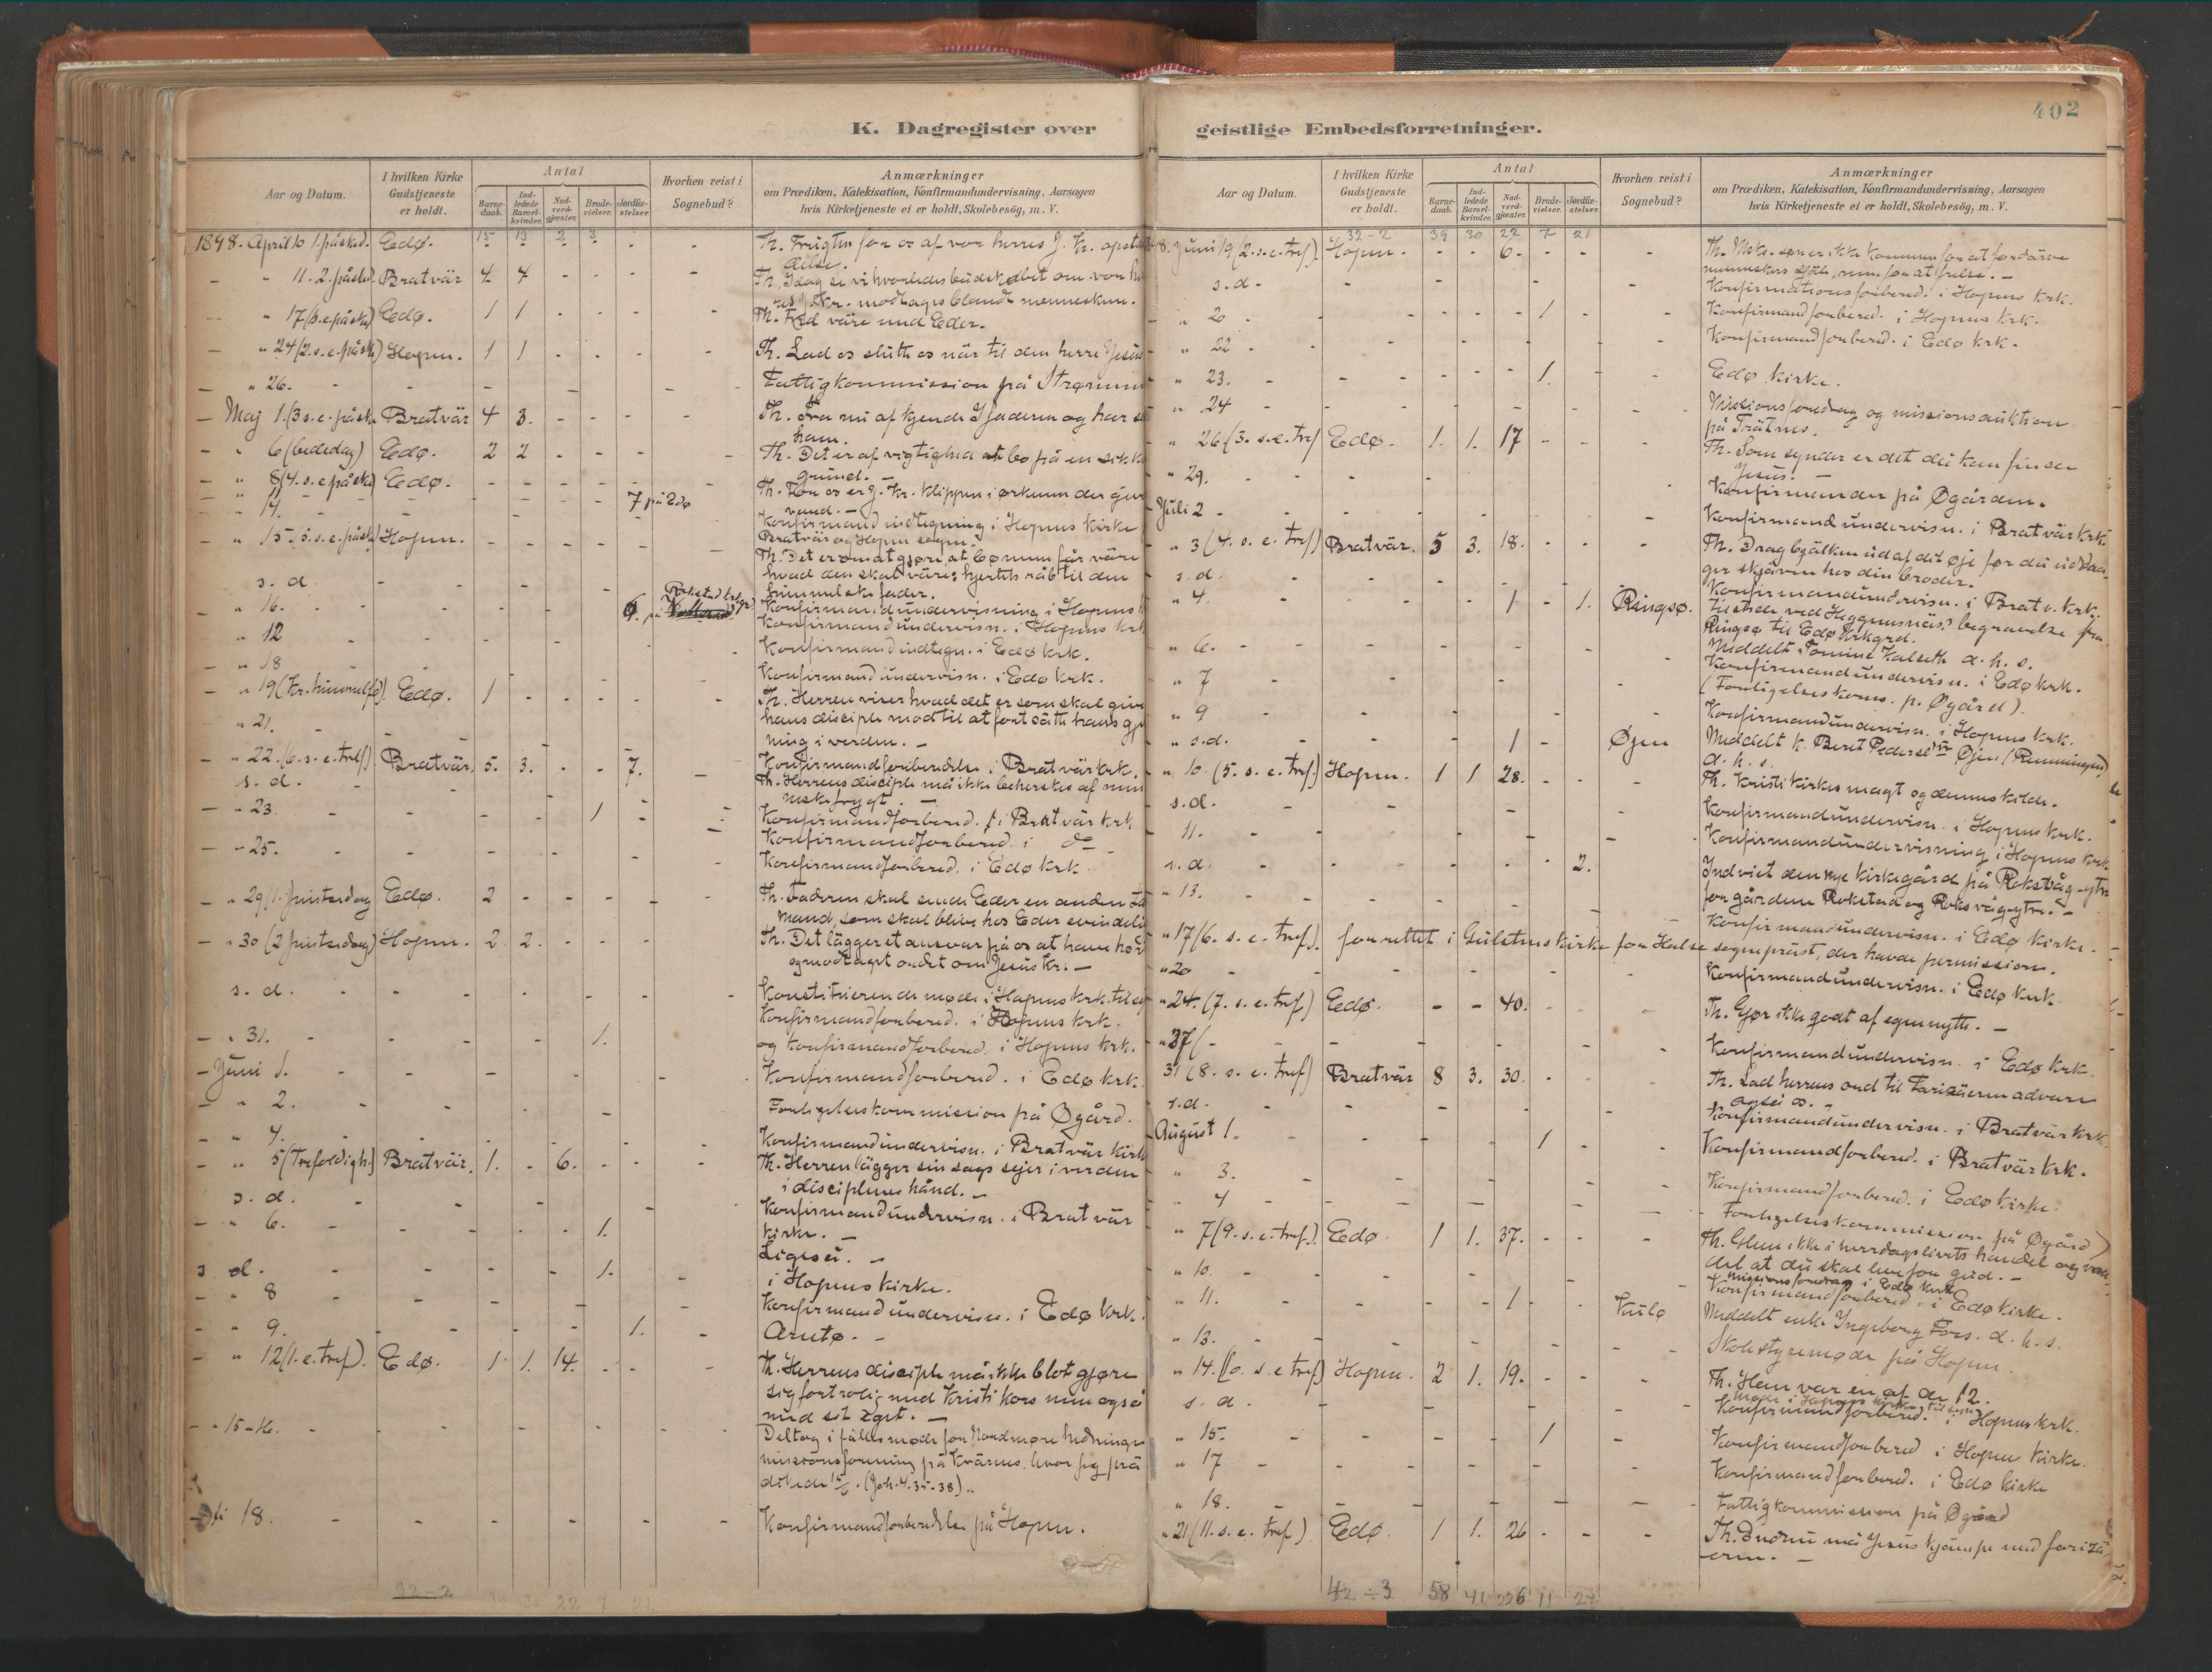 402
K. Dagregister over
geistlige Embedsforretninger.
Aar og Datum.
I hvilken Kirke Gudstjeneste er holdt.
Antal
Barne-daab.
Ind-ledede Barsel-kvinder.
Nad-verd-gjæster.
Brude-vielser.
Jordfæ-stelser.
Hvorhen reist i Sognebud?
Anmærkninger
om Prædiken, Katekisation, Konfirmandundervisning, Aarsagen
hvis Kirketjeneste ei er holdt, Skolebesög, m. V.
15 13 2 3
1898. April 10 1. påsked. Edø. - - - - - - Th. Frugten for os af vor herres J. Kr. opstan-
delse.
- " 11. 2. påsked. Bratvär 4 4 - - - - Th. Idag se vi hvorledes budskabet om vor her-
res J. Kr. modtages blandt menneskene.
" 17 (1. s. e. påske) Edø. 1 1 - - - - Th. Fred väre med Eder.
- " 24 (2. s. e. påske) Hopen. 1 1 - - - - Th. Lad os slutte os när til den herre Jesus
- " 26. - - - - - - Fattigkommission på Strømmen
- Maj 1. (3 s. e. påske Bratvär 4 3. - - - - Th. Fra nu af kjende I faderen og har sét
ham.
- " 6 (bededag) Edø. 2 2 - - - - Th. Det er af vigtighed at bo på en sikker
grund. -
- " 8 (4. s. e. påske) Edø. - - - - - - Th. For os er J. Kr. klippen i ørkenen der giver
vand. -
" 14. - - - - 7 på Edø Konfirmandindtegning i Hopens kirke
Bratvär og Hopen sogn.
" 15. (5. s. e. påske) Hopen. - - - - - Th. Det er om at gjøre, at bønnen får väre
hvad den skal väre: hjertets råb til den
himmelske fader.
s. d. - - - - - - Konfirmandundervisning i Hopens
- " 16. - - - - 6. på Rokstad Konfirmandundervisn. i Hopens krk
" 12 - - - - - Konfirmandindtegn. i Edø krk.
- " 18 - - - - - Konfirmandundervisn. i Edø krk.
- " 19 (Kr. himmelfd). Edø. 1 - - - - - Th. Herren viser hvad det er som skal give
hans disciple mod til at fortsätte hans gjer-
ning i verden. -
" 21. - - - - - Konfirmandforberedelse i Bratvär krk.
- " 22. (6. s. e. Bratvär. 5. 3. - - 7. - Th. Herrens disciple må ikke beherskes af men-
neskefrygt. -
s. d. - - - Konfirmandforbered. i Bratvär krk
- " 23. - - - - 1 - Konfirmandforbered. i do -
- " 25. - - - - - Konfirmandforbered. i Edø krk
- " 29 (1. pintsedag Edø. 2 - - - - - Th. Faderen skal sende Eder en anden Tals-
mand, som skal blive hos Eder evindelig
- " 30 (2 pintsedag) Hopen. 2 2. - - - Th. Det lägger et ansvar på os at have hørt
og modtaget ordet om Jesus Kr. -
s. d. - - - - - - Konstituerende møde i Hopens krk. til
Konfirmandforbered. i Hopens krk.
- " 31. - - - - 1. og Konfirmandforbered. i Hopens krk.
- Juni 1. - - - - - Konfirmandforbered. i Edø krk.
- " 2. - - - - Forligelseskommission på Øgård.
- " 4. - - - - - Konfirmandundervisn. i Bratvär kirke
- " 5 (Trefoldigh.) Bratvär. 1. - 6. - - - Th. Herren lägger sin sags sejer i verden
i disciplenes hånd. -
s. d. - - - - Konfirmandundervisn. i Bratvär
kirke. -
- " 6. - - - - 1. Ligeså. -
s. d. - - - 1. - i Hopens kirke.
- " 8 - - - - Konfirmandundervisn. i Edø krk.
- " 9. - - - - 1. - Arntø. -
- " 12 (1. e. tref). Edø. 1 1. 14. - - - Th. Herrens disciple må ikke blot gjøre
sig fortrolig med Kristi kors men også
med sit eget. -
- " 15-16. - - - - - - Deltog i fällesmøde for Nordmøre hedninge-
missionsforening på Kvärnes, hvor jeg præ-
dikede 15/6. (Joh. 4. 35-38)..
- " 18. - - - - - - Konfirmandforberedelse på Hopen.
32-2
32-2 39 30 22 7 21
98. Juni 19 (2. s. e. tref). Hopen. - - 6. - - - Th. Msks. søn er ikke kommen for at fordärve
menneskers själe, men for at frelse. -
s. d. - - - - - Konfirmationsforbered. i Hopens krk.
" 20 - - - - 1 - Konfirmandforbered. i Hopens krk.
" 22 - - - - - Konfirmandforbered. i Edø krk.
- " 23. - - - - 1. - Edø kirke.
" 24 - - - - - Missionsforedrag og missionsauktion
på Trätnes.
" 26 (3. s. e. tref Edø. 1. 1. 17 - - - Th. Som synder er det du kan finde
Jesus. -
" 29. - - - - - Konfirmander på Øgården.
Juli 2 - - - - - Konfirmandundervisn. i Bratvär krk.
" 3 (4. s. e. tref) Bratvär. 5 3. 18. - - - Th. Drag bjälken ud af dit øje før du uddra-
ger skjäven hos din broder.
s. d. - - - - - Konfirmandundervisn. i Bratv. krk.
" 4. - - - 1 - 1. Ringsø. tilstede ved begravelse fra
Ringsø til Edø krkgrd.
Meddelt d. h. s.
" 6. - - - - - Konfirmandundervisn. i Edø krk.
" 7 - - - - - (Forligelseskoms. p. Øgård).
" 9 - - - - - Konfirmandundervisn. i Hopens krk.
" s. d. - - - 1 - Øjen Meddelt k. Beret Pedersd. Øjen
d. h. s.
" 10. (5. s. e. tref.) Hopen. 1 1 28. - - - Th. Kristi kirkes magt og dennes kilde.
s. d. - - - - - Konfirmandundervisn. i Hopens krk.
11. - - - - - Konfirmandundervisning i Hopens krk
s. d. - - - - - 2. Indviet den nye kirkegård på Roksvåg-ytre
for gårdene Rokstad og Roksvåg-ytre. -
" 13. - - - - - Konfirmandundervisn. i Edø kirke. -
" 17 (6. s. e. tref). forrettet i Gulstens kirke for Halse sogneprest, der havde permission.
" 20 - - - - - Konfirmandundervisn. i Edø krk.
" 24. (7. s. e. tref) Edø. - - 40. - - - Th. Gjør ikke godt af egennytte. -
" 27 - - - - - Konfirmandundervisn. i Edø krk.
31 (8. s. e. tref) Bratvär 8 3. 30. - - - Th. Lad herrens ord til Farisäerne advare
også os. -
s. d. - - - - - Konfirmandundervisn. i Bratvär krk.
August 1. - - - - 1 - Konfirmandforbered. i Bratvär krk.
" 3. - - - - - Konfirmandforbered. i Edø kirke.
" 4 - - - - - Forligelseskommission på Øgård)
" 7 (9. s. e. tref.). Edø. 1 1. 37. - - - Th. Glem ikke i hverdagslivets handel og van-
del at du skal leve for gud. -
missionsforedrag i Edø kirke
" 10. - - - - - Konfirmandforbered. i Edø kirke.
" 11. - - - 1 - - Kulø Meddelt enk. Ingeborg d. h. s.
" 13. - - - - - Skolestyremøde på Hopen.
" 14. (10. s. e tref) Hopen. 2 1. 19. - - - Th. Han var en af de 12.
s. d. - - - - - Konfirmandforbered. i Hopens krk.
" 15. - - - - 1 - Konfirmandforbered i Hopen kirke.
" 17 - - - - - Konfirmandforbered. i Edø kirke
" 18. - - - - - Fattigkommission på Øgård
" 21 (11. s. e. tref) Edø. 1 1. 26 - - - Th. Endnu må Jesus kjämpe med farizä-
erne. -
42 ÷ 3 58 41 226 11 24